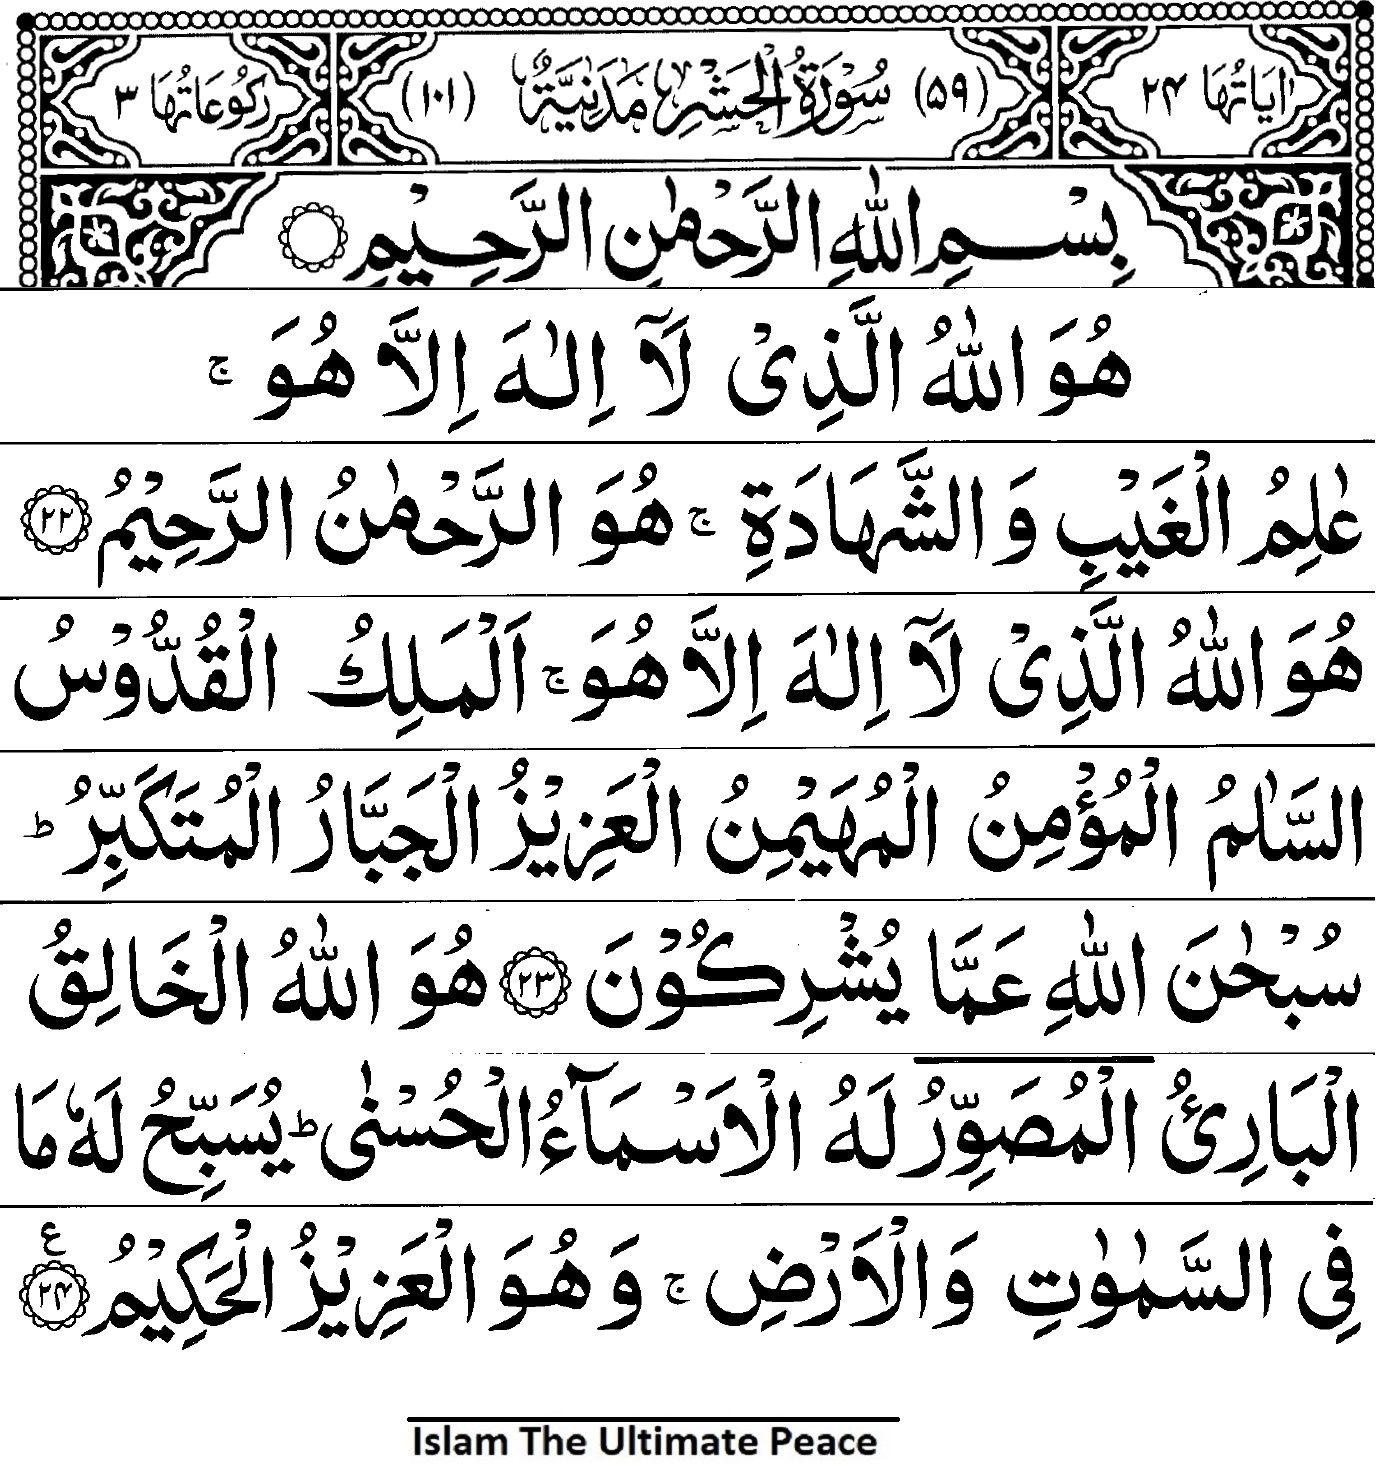 اٰيَاتُهَا ٢٤ (٥٩) سُوْرَةُ الْحَشْرِ مَدَنِيَّةٌ (١٠١) رُكُوْعَاتُهَا ٣
بِسْمِ اللّٰهِ الرَّحْمٰنِ الرَّحِيْمِ
هُوَ اللّٰهُ الَّذِىْ لَآ اِلٰهَ اِلَّا هُوَ ۚ
عٰلِمُ الْغَيْبِ وَ الشَّهَادَةِ ۚ هُوَ الرَّحْمٰنُ الرَّحِيْمُ ٢٢
هُوَ اللّٰهُ الَّذِىْ لَآ اِلٰهَ اِلَّا هُوَ ۚ اَلْمَلِكُ الْقُدُّوْسُ
السَّلٰمُ الْمُؤْمِنُ الْمُهَيْمِنُ الْعَزِيْزُ الْجَبَّارُ الْمُتَكَبِّرُ ؕ
سُبْحٰنَ اللّٰهِ عَمَّا يُشْرِكُوْنَ ٢٣ هُوَ اللّٰهُ الْخَالِقُ
الْبَارِئُ الْمُصَوِّرُ لَهُ الْاَسْمَآءُ الْحُسْنٰى ؕ يُسَبِّحُ لَهٗ مَا
فِى السَّمٰوٰتِ وَالْاَرْضِ ۚ وَ هُوَ الْعَزِيْزُ الْحَكِيْمُ ٢٤ ع
Islam The Ultimate Peace